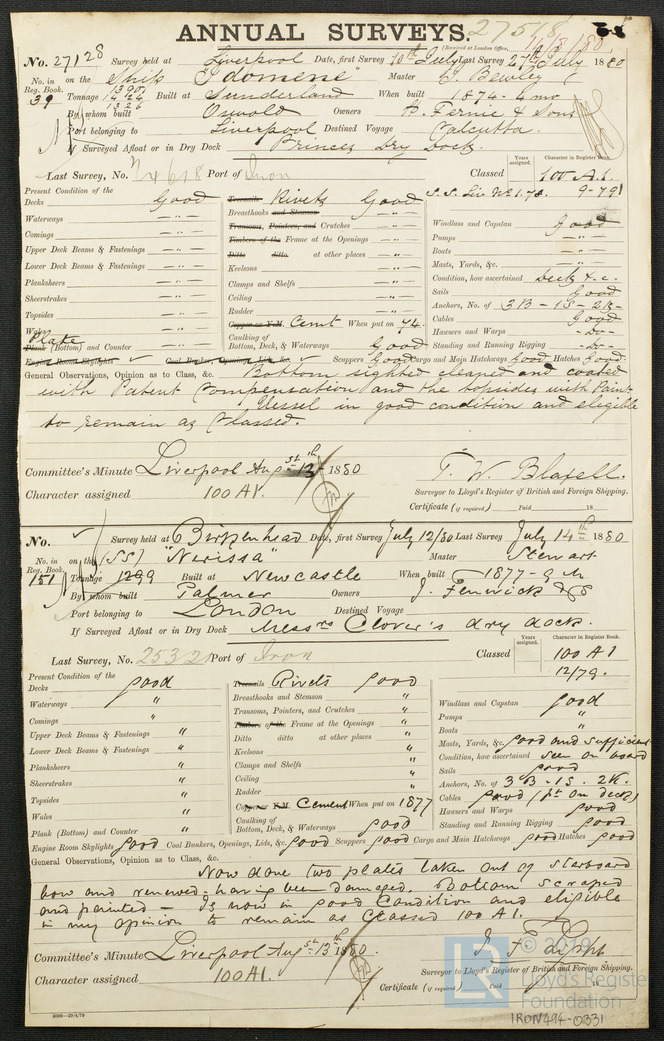 ANNUAL SURVEYS.
27518
(Received at London Office, 14/8/80)
No. 27128 Survey held at Liverpool Date, first Survey 10th July Last Survey 27th July 1880
No. in Reg. Book. 39 on the Ship "Idomene" Master Bewley
Tonnage 1390 1424 1326 Built at Sunderland When built 1874 - 4 mo
By whom built Oswold Owners H. Fernie & Sons
Port belonging to Liverpool Destined Voyage Calcutta.
If Surveyed Afloat or in Dry Dock Princes Dry Dock.
Years assigned. Character in Register Book.
Last Survey, No. 24618 Port of Iron Classed 100 A.1.
S.S. Liv No 1. 78. 9-79
Present Condition of the
Decks Good
Waterways — " —
Comings — " —
Upper Deck Beams & Fastenings — " —
Lower Deck Beams & Fastenings — " —
Planksheers — " —
Sheerstrakes — " —
Topsides — " —
Wales — " —
Plate Plank (Bottom) and Counter — " —
Treenails Rivets Good
Breasthooks and Stemson — " —
Transoms, Pointers, and Crutches — " —
Timbers of the Frame at the Openings — " —
Ditto ditto at other places — " —
Keelsons — " —
Clamps and Shelfs — " —
Ceiling — " —
Rudder — " —
Copper or Y.M. Cemt When put on 74.
Caulking of Bottom, Deck, & Waterways Good
Windlass and Capstan Good
Pumps — " —
Boats — " —
Masts, Yards, &c. — " —
Condition, how ascertained Deck & c.
Sails Good
Anchors, No. of 3B - 1S - 2K -
Cables Good
Hawsers and Warps - do -
Standing and Running Rigging - do -
Engine Room Skylights ✓ Coal Bunkers, Openings, Lids, &c. ✓ Scuppers Good Cargo and Main Hatchways Good Hatches Good.
General Observations, Opinion as to Class, &c. Bottom sighted cleaned and coated
with Patent Compensation and the topsides with Paint
Vessel in good condition and eligible
to remain as Classed.
Committee's Minute Liverpool Augst 13th 1880
T. W. Blafell.
Character assigned 100 A1.
Surveyor to Lloyd's Register of British and Foreign Shipping.
Certificate (if required) Paid 18
No. ✓ Survey held at Birkenhead Date, first Survey July 12/80 Last Survey July 14th 1880
No. in Reg. Book. 151 on the (SS) "Nerissa" Master Stewart
Tonnage 1299 Built at Newcastle When built 1877 - 9 M
By whom built Palmer Owners J. Fenwick & S
Port belonging to London Destined Voyage
If Surveyed Afloat or in Dry Dock Messrs Clover's dry dock.
Years assigned. Character in Register Book.
Last Survey, No. 25321 Port of Iron Classed 100 A1
12/79.
Present Condition of the
Decks good
Waterways "
Comings "
Upper Deck Beams & Fastenings "
Lower Deck Beams & Fastenings "
Planksheers "
Sheerstrakes "
Topsides "
Wales "
Plank (Bottom) and Counter "
Treenails Rivets good
Breasthooks and Stemson "
Transoms, Pointers, and Crutches "
Timbers of the Frame at the Openings "
Ditto ditto at other places "
Keelsons "
Clamps and Shelfs "
Ceiling "
Rudder "
Copper or Y.M. Cement When put on 1877
Caulking of Bottom, Deck, & Waterways good
Windlass and Capstan good
Pumps "
Boats "
Masts, Yards, &c. good and sufficient
Condition, how ascertained seen on board
Sails good
Anchors, No. of 3 B. 1S. 2K.
Cables good (pt on deck)
Hawsers and Warps good
Standing and Running Rigging good
Engine Room Skylights good Coal Bunkers, Openings, Lids, &c. good Scuppers good Cargo and Main Hatchways good Hatches good
General Observations, Opinion as to Class, &c.
Now done two plates taken out of starboard
bow and renewed having been damaged. Bottom scraped
and painted — Is now in good Condition and eligible
in my opinion to remain as Classed 100 A1.
Committee's Minute Liverpool Augst 13th 1880.
Character assigned 100 A1.
Surveyor to Lloyd's Register of British and Foreign Shipping.
Certificate (if required) Paid
LR © 2019
Lloyd's Register
Foundation
IRON494-0331